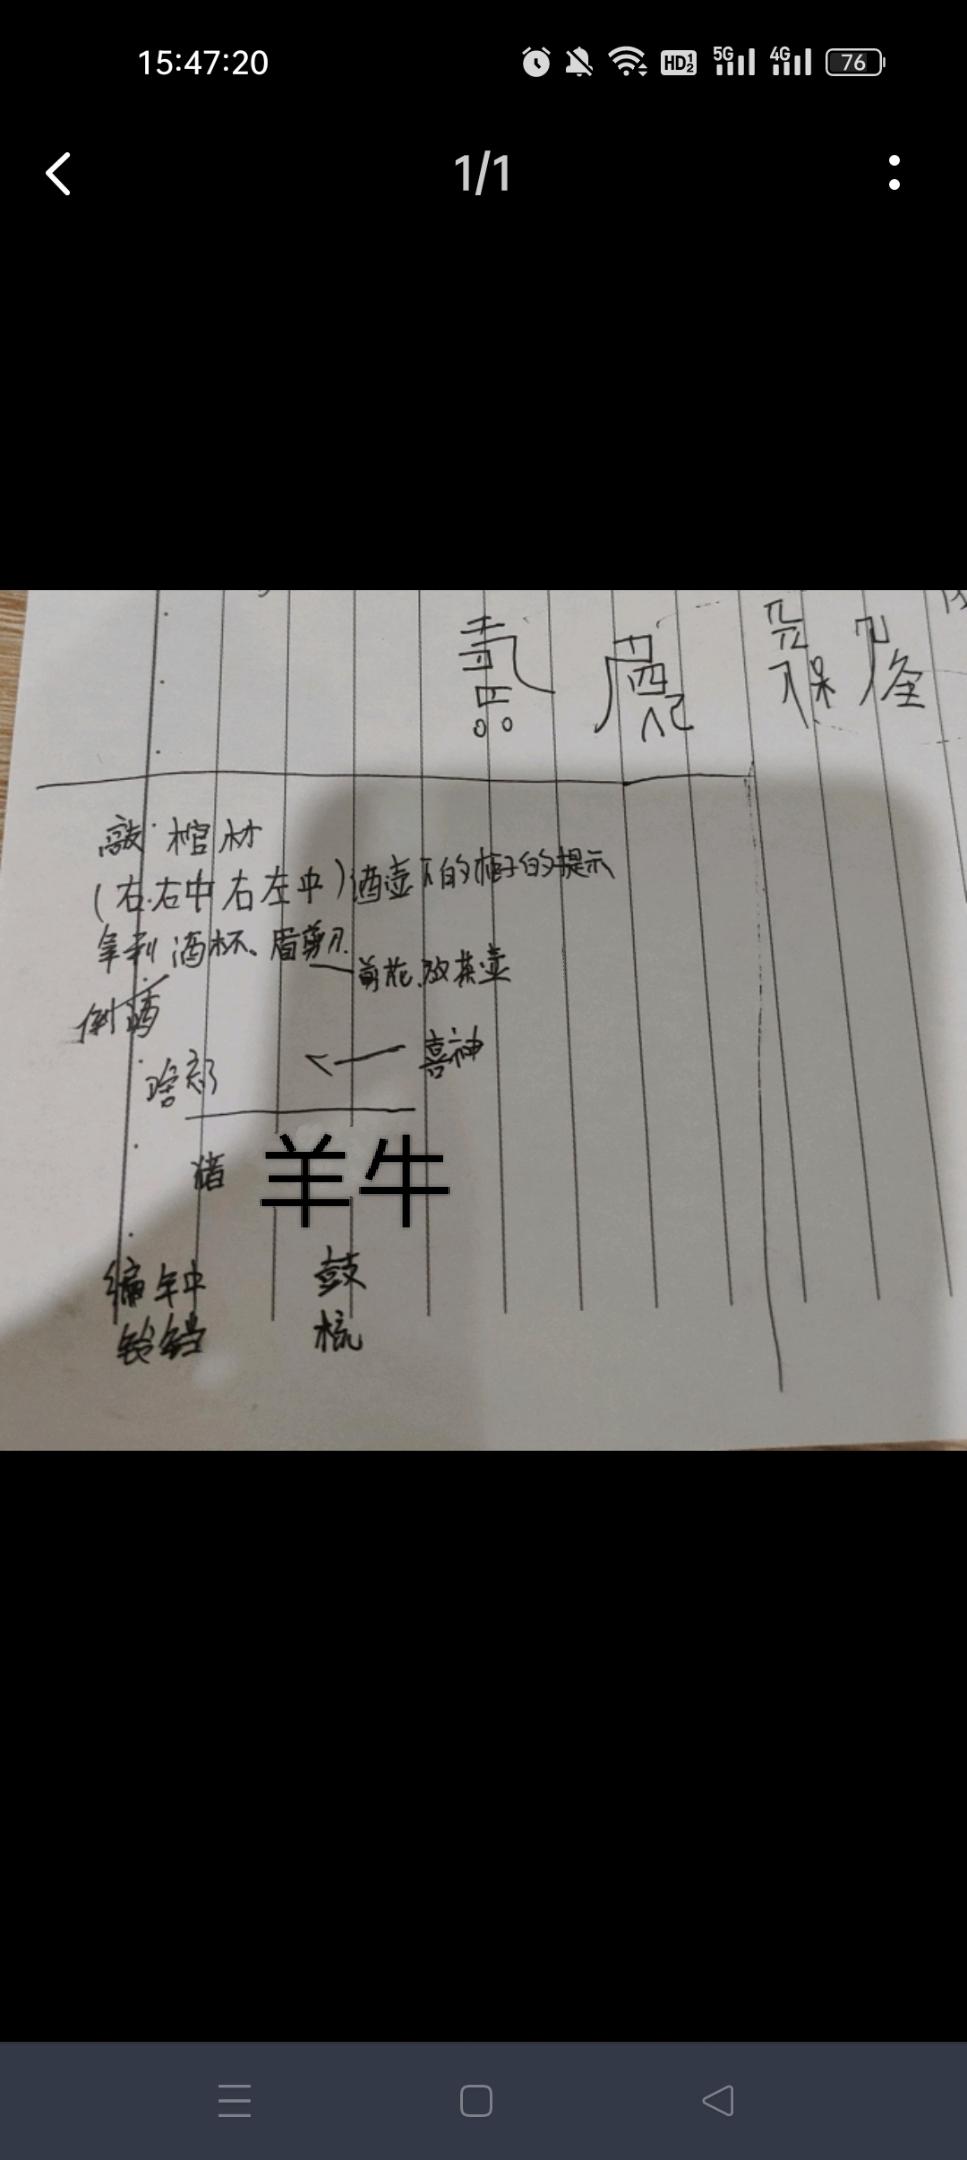 15:47:20 HD 1 2 5G 4G 76
1/1
敲棺材
(右右中右左中)酒壶下的柜子的提示
拿到酒杯、眉剪刀
剪花放茶壶
倒酒
喜神
猪 羊牛
编钟 鼓
铃铛 梳